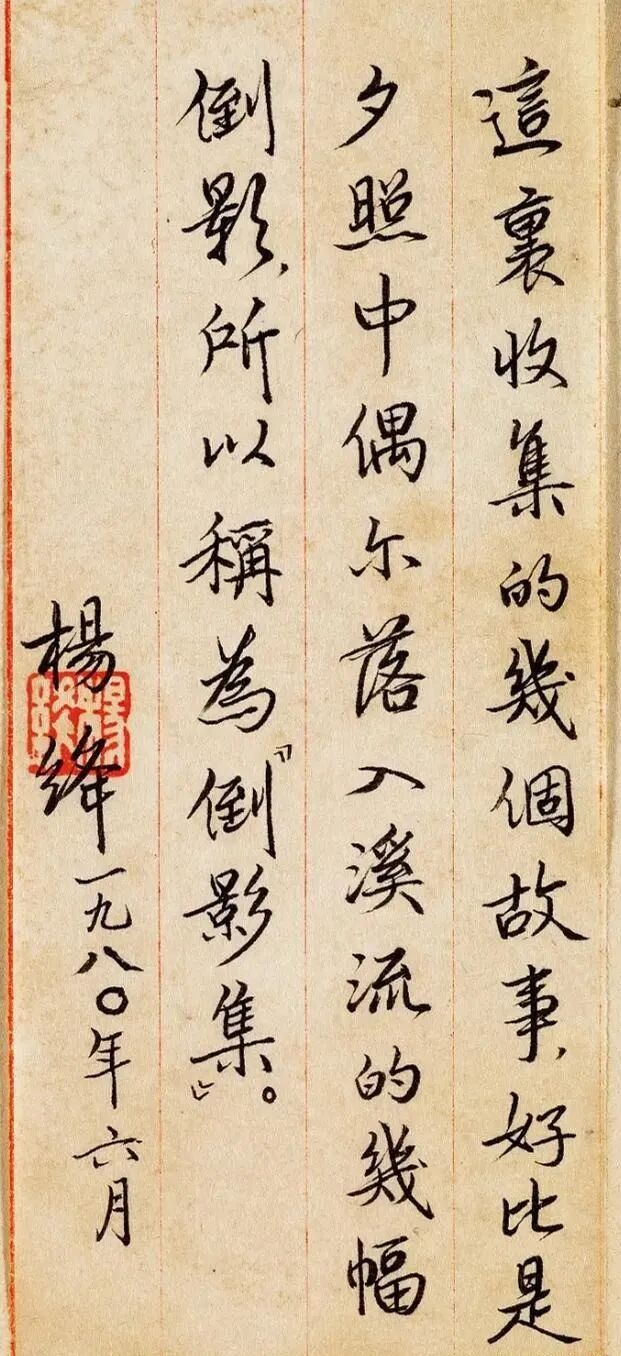 這裏收集的幾個故事,好比是
夕照中偶尔落入溪流的幾幅
倒影,所以稱為『倒影集』。
楊絳一九八〇年六月